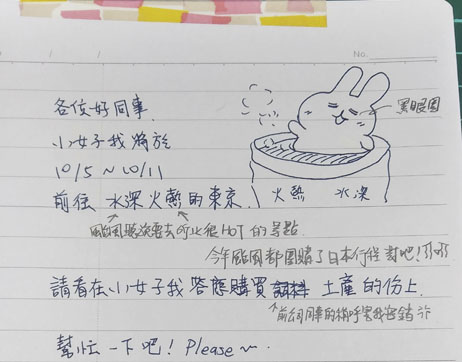 No.
各位好同事
黑眼圈
小女子我將於
10/5 ~ 10/11
前往 水深火熱的東京.
火熱 水深
颱風 要去 很HOT的景點
今年颱風都團購了日本行程 對吧!
請看在小女子我答應購買 土產的份上.
前公司同事的
幫忙一下吧! Please~.